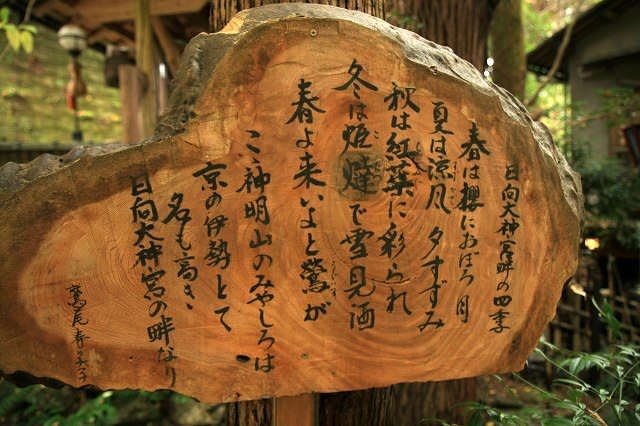 日向大神宮畔の四季
春は櫻におぼろ月
夏は涼風夕すずみ
秋は紅葉に彩られ
冬は炬燵で雪見酒
春よ来いよと鶯が
こゝ神明山のみやしろは
京の伊勢とて
名も高き
日向大神宮の畔なり